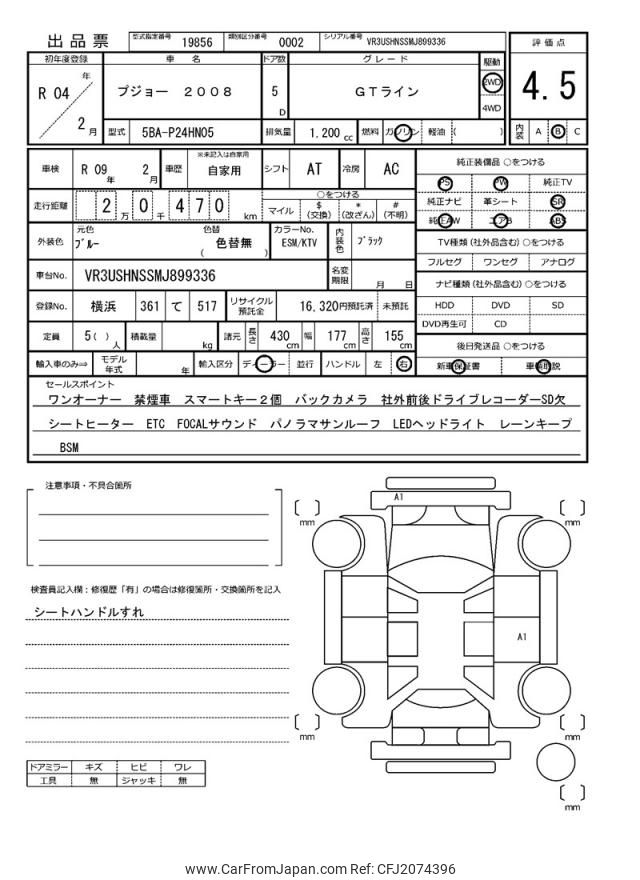 出品票 型式指定番号 19856 類別区分番号 0002 シリアル番号 VR3USHNSSMJ899336
評価点
4.5
内装 A B C
初年度登録 車名 ドア数 グレード 駆動
R 04 年 2 月
プジョー 2008 5 D GTライン 2WD 4WD
型式 5BA-P24HN05 排気量 1,200 cc 燃料 ガソリン 軽油 ( )
車検 R 09 年 2 月 車歴 ※未記入は自家用 自家用 シフト AT 冷房 AC
走行距離 2 万 0 千 4 7 0 km ○をつける マイル $ (交換) * (改ざん) # (不明)
外装色 元色 ブルー 色替 ( 色替無 ) カラーNo. ESM/KTV 内装色 ブラック
車台No. VR3USHNSSMJ899336 名変期限 月 日
登録No. 横浜 361 て 517 リサイクル預託金 16,320円預託済 未預託
定員 5( ) 人 積載量 kg 諸元 長さ 430 cm 幅 177 cm 高さ 155 cm
輸入車のみ⇒ モデル年式 年 輸入区分 ディーラー 並行 ハンドル 左 右
純正装備品 ○をつける
PS PW 純正TV
純正ナビ 革シート SR
純正AW エアB ABS
TV種類 (社外品含む) ○をつける
フルセグ ワンセグ アナログ
ナビ種類 (社外品含む) ○をつける
HDD DVD SD
DVD再生可 CD
後日発送品 ○をつける
新車保証書 車輌取説
セールスポイント
ワンオーナー 禁煙車 スマートキー2個 バックカメラ 社外前後ドライブレコーダーSD欠
シートヒーター ETC FOCALサウンド パノラマサンルーフ LEDヘッドライト レーンキープ
BSM
注意事項・不具合箇所
検査員記入欄：修復歴「有」の場合は修復箇所・交換箇所を記入
シートハンドルすれ
ドアミラー キズ ヒビ ワレ
工具 無 ジャッキ 無
A1
[ ] mm
[ ] mm
A1
[ ] mm
[ ] mm
[ ] mm
www.CarFromJapan.com Ref: CFJ2074396